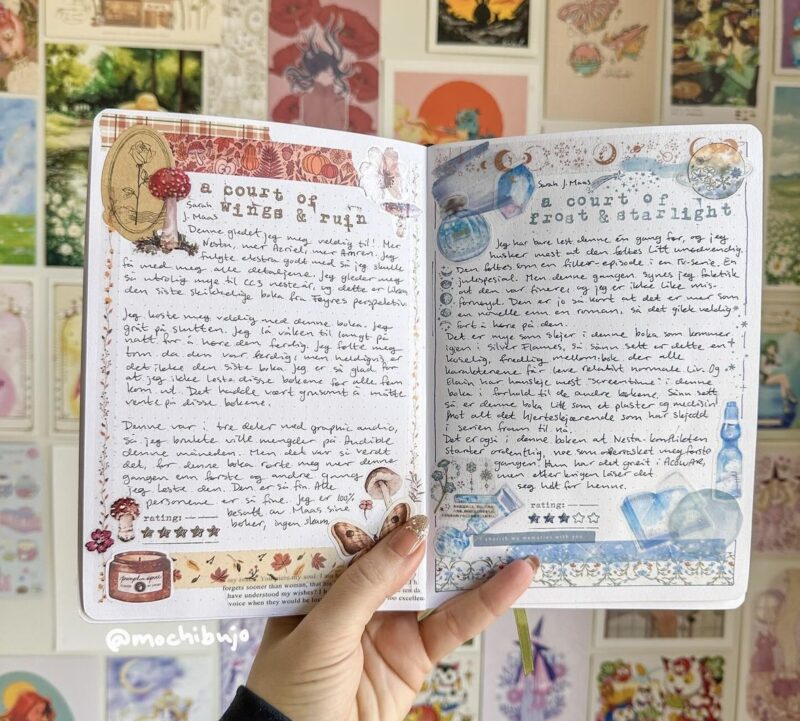 a court of
wings & ruin
Sarah
J. Maas
Denne gledet jeg meg veldig til! Mer
Nesta, mer Azriel, mer Amren. Jeg
fulgte ekstra godt med så jeg skulle
få med meg alle detaljene. Jeg gleder meg
så utrolig mye til CC3 neste år, og dette er liksom
den siste skikkelige boka fra Feyres perspektiv
Jeg koste meg veldig med denne boka. Jeg
gråt på slutten. Jeg lå våken til langt på
natt for å høre den ferdig. Jeg følte meg
tom da den var ferdig, men heldigvis er
det ikke den siste boka. Jeg er så glad for
at jeg ikke leste disse bøkene før alle fem
kom ut. Det hadde vært grusomt å måtte
vente på disse bøkene.
Denne var i tre deler med graphic audio,
så jeg brukte ville mengder på Audible
denne måneden. Men det var så verdt
det, for denne boka rørte meg mer denne
gangen enn første gang
jeg leste den. Den er så fin. Alle
personene er så fine. Jeg er 100%
besatt av Maas sine
bøker, ingen skam
rating:
pumpkin spice
my soul. I am
forgets sooner than woman, that
have understood my wishes? I h
voice when they would be lo
too excellen
@mochibujo
Sarah J. Maas
a court of
frost & starlight
Jeg har bare lest denne én gang før, og jeg
husker mest at den føltes litt unødvendig
Den føltes som en filler-episode i en TV-serie. En
julespesial. Men denne gangen synes jeg faktisk
at den var finere, og jeg er ikke like mis-
fornøyd. Den er jo så kort at det er mer som
en novelle enn en roman, så det gikk veldig
fort å høre på den.
Det er mye som skjer i denne boka som kommer
igjen i Silver Flames, så sånn sett er dette en
koselig, fredlig mellom-bok der alle
karakterene får leve relativt normale liv. Og
Elain har kanskje mest "screentime" i denne
boka i forhold til de andre bøkene. Sånn sett
så er denne boka litt som et plaster og medisin
mot alt det hjerteskjærende som har skjedd
i serien fram til nå.
Det er også i denne boken at Nesta-konflikten
starter ordentlig, noe som overrasket meg første
gangen. Hun har det greit i ACOWAR,
men etter krigen låser det
seg helt for henne.
rating:
I cherish my memories with you.